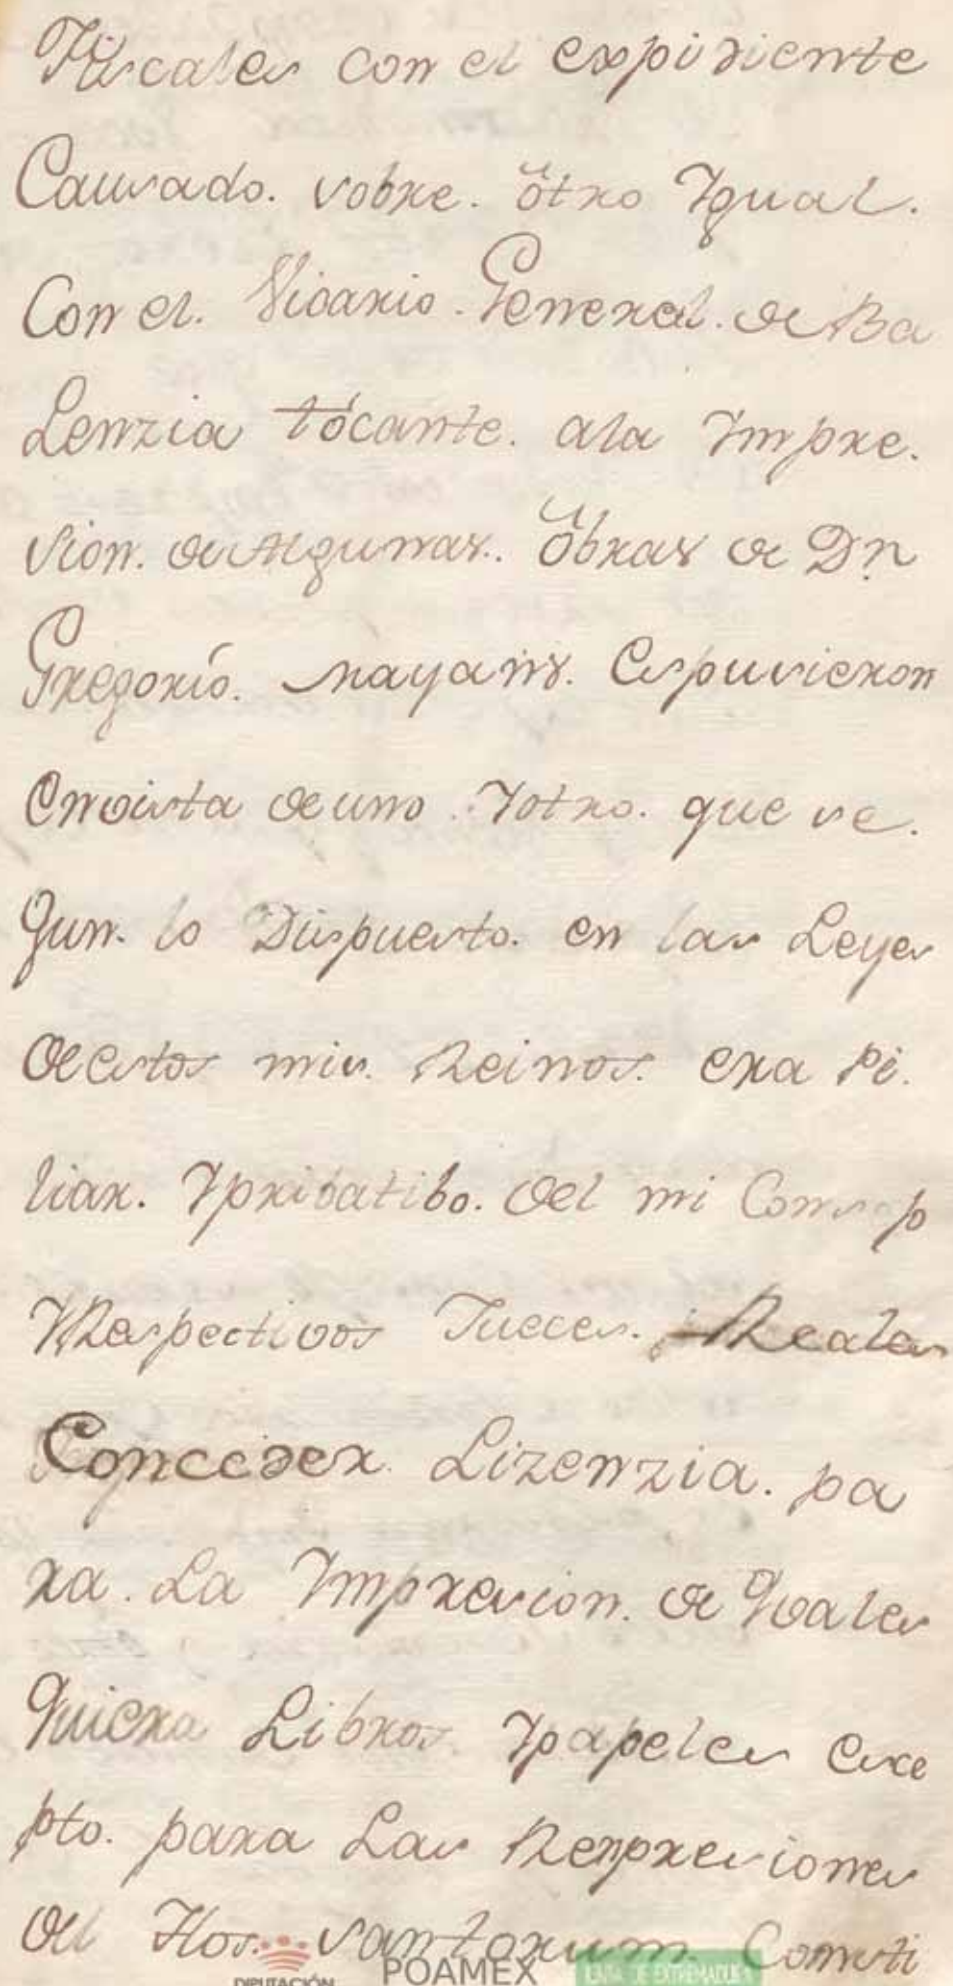 Fiscales con el expidiente
Causado. sobre. otro Ygual.
Con el. Vicario. General. de Ba
Lenzia tócante. ala Ympre.
sion. de Algunas. Obras de Dn
Gregorío. mayans. Espusieron
Envista de uno Yotro. que se.
Gun. lo Dispuesto. en las Leyes
de estos mis. Reinos. era Pi.
liar. Ypribatibo. del mi Consejo
YRespectivos Jueces. Reales
Conceder Lizenzia. pa
ra. La Impresion. de Quales
Quiera Libros Ypapeles exce
pto. para Las Reympresiones
del Flos. santorum Consti
DIPUTACIÓN
POAMEX
JUNTA DE EXTREMADURA